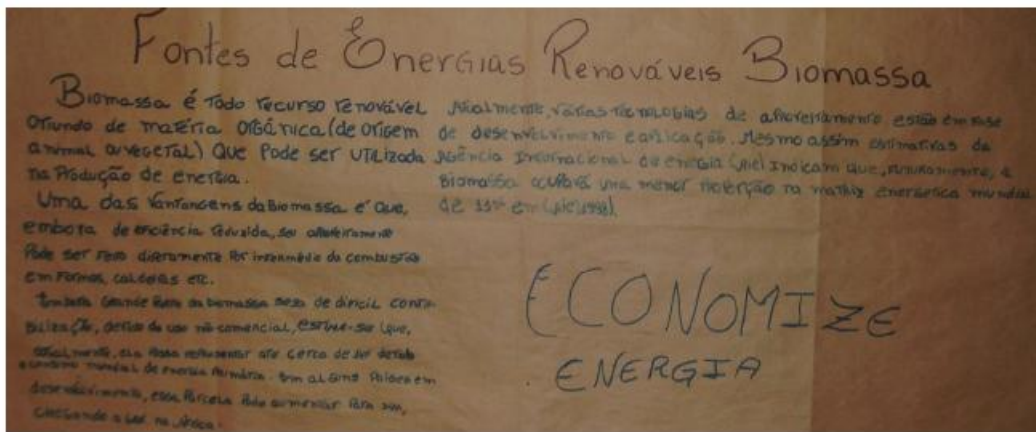 Fontes de Energias Renováveis Biomassa
Biomassa é Todo recurso renovável
Oriundo de matéria Orgânica (de origem
animal ou vegetal) Que Pode ser UTILIZADA
na Produção de energia.
Uma das Vantangens da Biomassa é Que,
embora de eficiência reduzida, seu
Pode ser feito diretamente Por intermédio da combustão
em Fornos, caldeiras etc.
Embora Grande Parte da biomassa seja de difícil conta-
bilização, devido ao uso não comercial, estima-se Que,
atualmente, ela Possa representar até cerca de
mundial de energia Primária. em alguns Países em
desenvolvimento, essa Parcela Pode aumentar Para
chegando a
Atualmente, várias Tecnologias de aproveitamento estão em fase
de desenvolvimento e aplicação. Mesmo assim estimativas da
Agência Internacional de energia Indicam que, futuramente, a
Biomassa ocupará uma menor na matriz energética mundial
de em
ECONOMIZE
ENERGIA